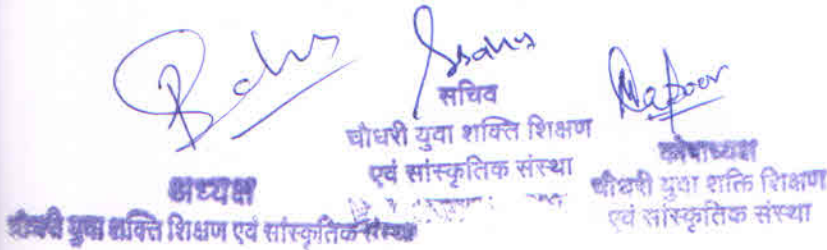 अध्यक्ष
चौधरी युवा शक्ति शिक्षण एवं सांस्कृतिक संस्था
सचिव
चौधरी युवा शक्ति शिक्षण
एवं सांस्कृतिक संस्था
Kapoor
कोषाध्यक्ष
चौधरी युवा शक्ति शिक्षण
एवं सांस्कृतिक संस्था